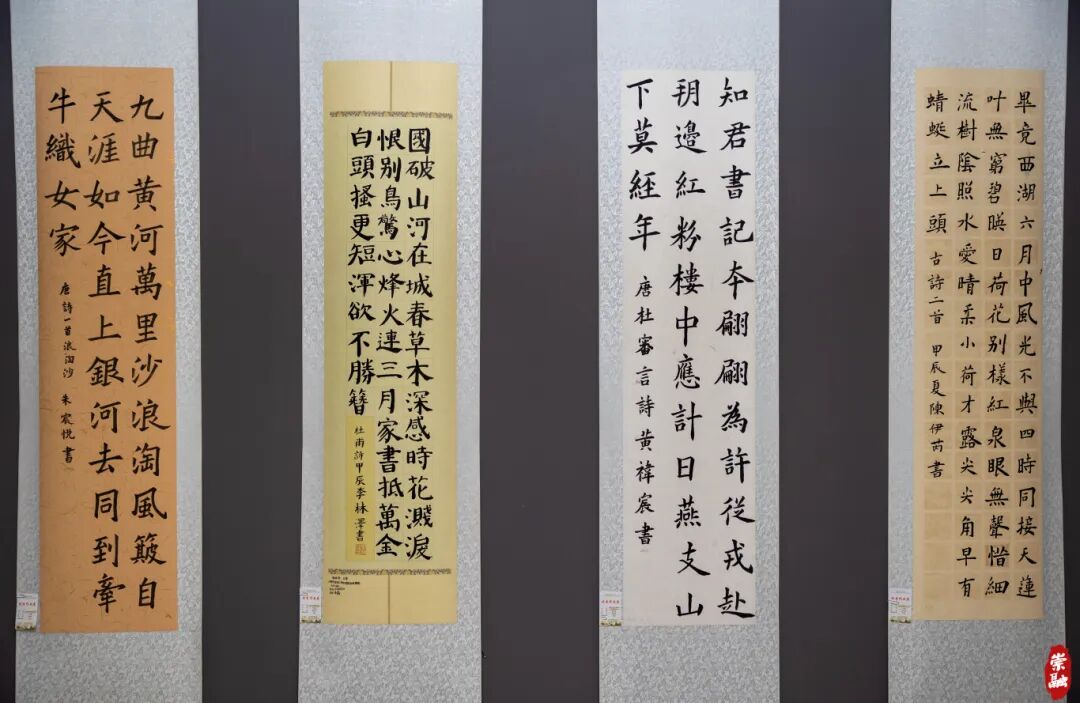 九曲黄河萬里沙浪淘風簸自
天涯如今直上銀河去同到牽
牛織女家
唐詩一首浪淘沙 朱宸悦書
國破山河在城春草木深感時花濺淚
恨别鳥驚心烽火連三月家書抵萬金
白頭搔更短渾欲不勝簪
杜甫詩甲辰李林書
知君書記本翩翩為許從戎赴
玥邊紅粉樓中應計日燕支山
下莫經年
唐杜審言詩黄禕宸書
畢竟西湖六月中風光不與四時同接天蓮
叶無窮碧暎日荷花别樣紅泉眼無聲惜細
流樹陰照水愛晴柔小荷才露尖尖角早有
蜻蜓立上頭 古詩二首 甲辰夏陳伊芮書
崇融